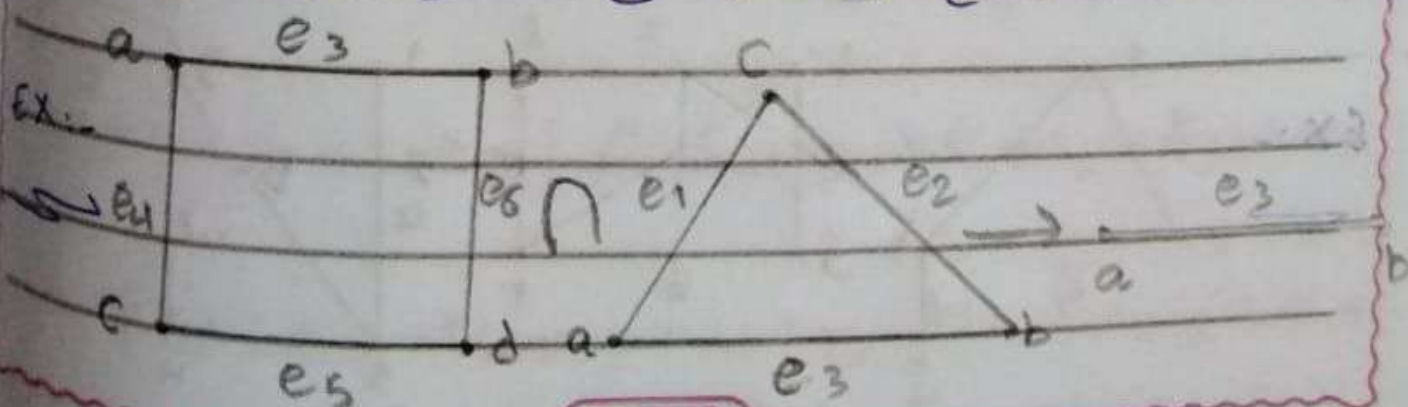 a e3 b C
Ex:-
e4 e6 ∩ e1 e2 → e3
a b
c d a b
e5 e3